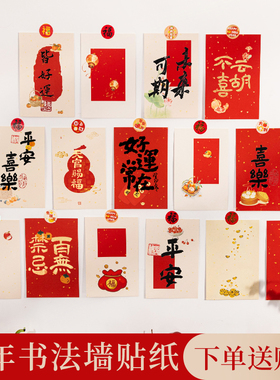 福
皆好運
未来可期
云胡不喜
平安喜樂
富福
好運常在
喜樂
百無禁忌
福
平安
年书法墙贴纸 下单送贴